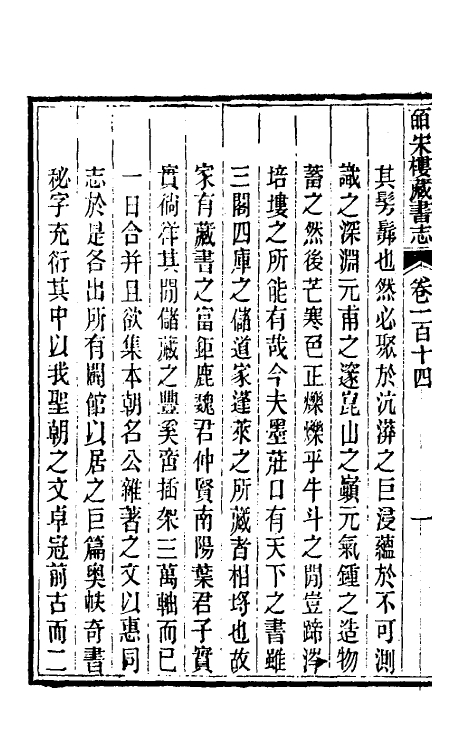 皕宋樓藏書志 卷一百十四 一
其髣髴也然必聚於沆漭之巨浸蘊於不可測
識之深淵元甫之邃崑山之巔元氣鍾之造物
蓄之然後芒寒色正爍爍乎牛斗之閒豈蹄涔
培塿之所能有哉今夫墨莊口有天下之書雖
三閣四庫之儲道家蓬萊之所藏者相埒也故
家有藏書之富鉅鹿魏君仲賢南陽葉君子實
實徜徉其閒儲藏之豐奚啻插架三萬軸而已
一日合并且欲集本朝名公雜著之文以惠同
志於是各出所有闢館以居之巨篇奧帙奇書
秘字充衍其中以我聖朝之文卓冠前古而二